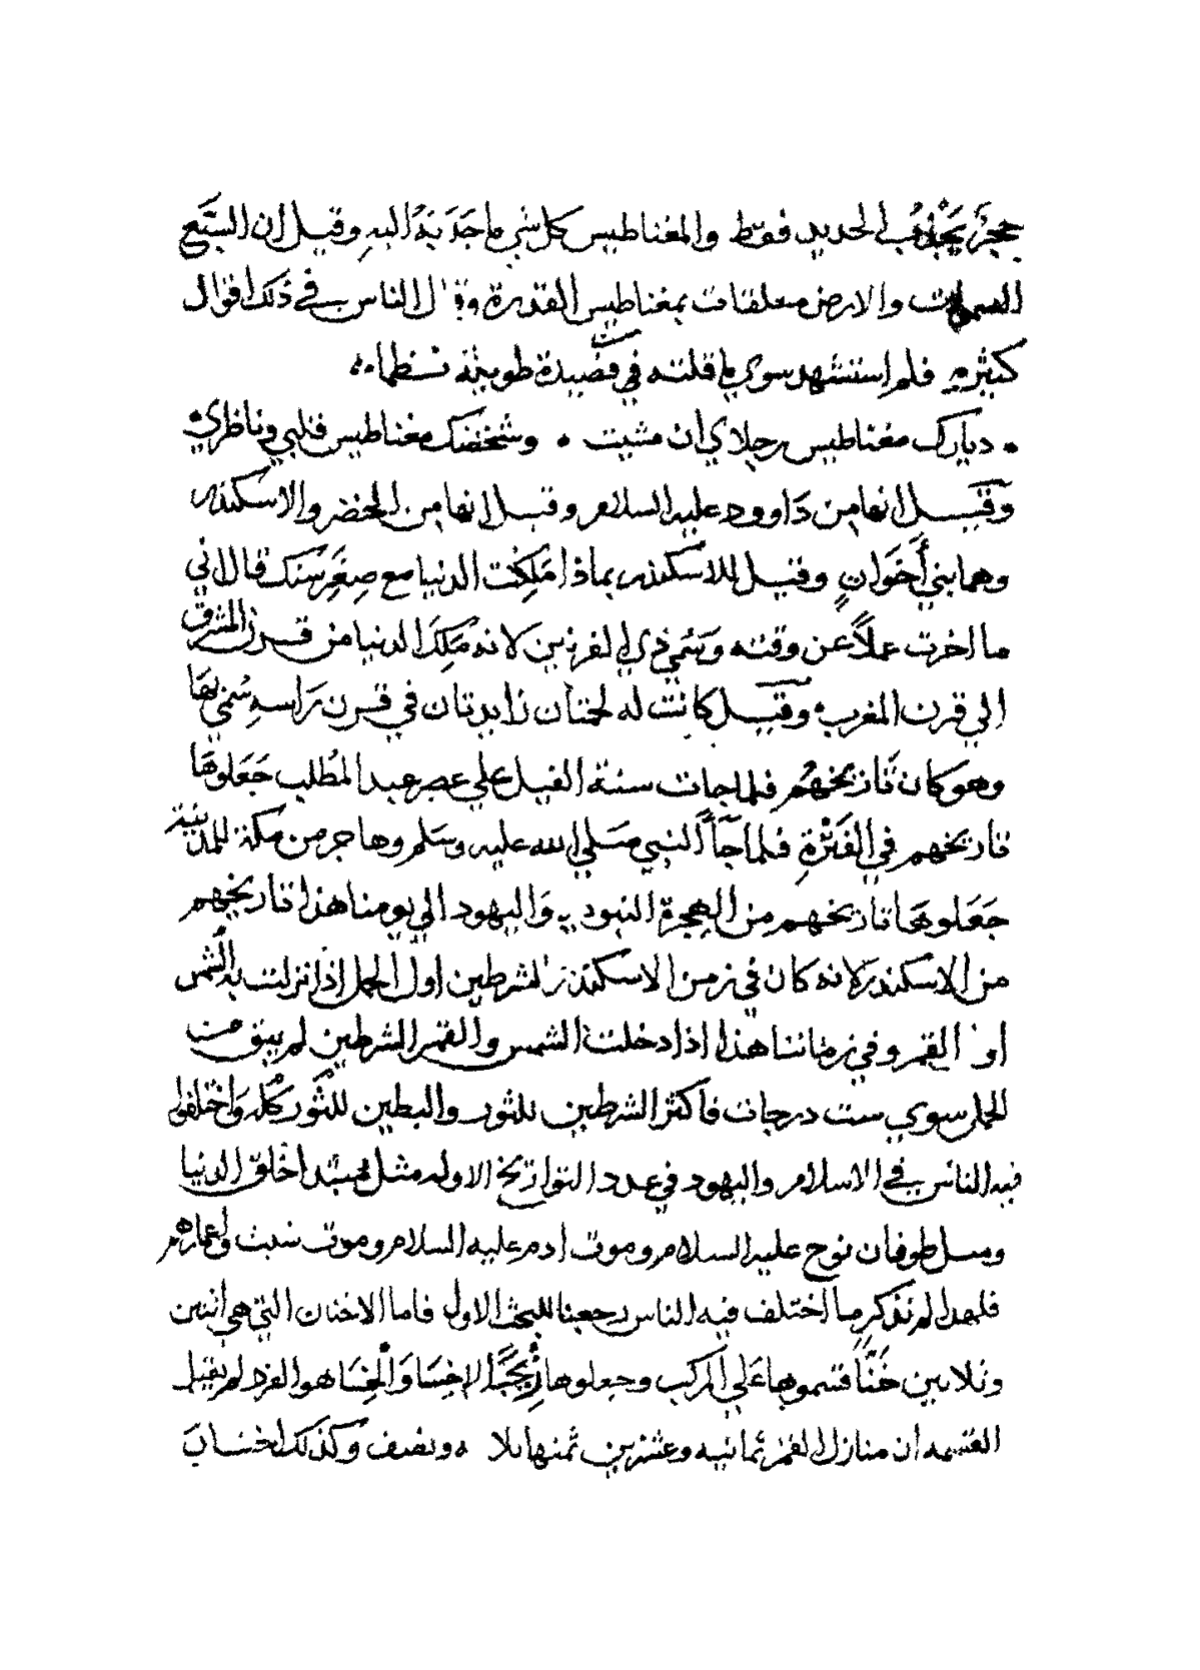 حجرَ يَجْذُب الحديد فقط والمغناطيس كل شي ما جَدَبَهُ اليهِ وقيل ان السَّبَع
السموات والارض معلقات بمغناطيس القدرة وقال الناس في ذلك اقوال
كثيره فلم استشهد سوي ما قلته في قصيدة طويلة نظما
ديارك مغناطيس رجلاي ان مشيت وشخضك مغناطيس قلبي وناظري
وَقيل انها من دَاوود عليه السلام وقيل انها من الخضر والاسكندر
وهما بني أَخَوانٍ وقيل للاسكندر بماذا مَلِكْت الدنيا مع صِغَرِ سَنك قال لاني
ما اخرت عملاً عن وقته وَسُمي ذي القرنين لانه مَلِكَ الدنيا من قرن المشرق
الي قرن المغرب وقيل كانت له لحمتان زايدتان في قرن رَاسهِ سُمي بهَا
وهوَ كان تَاريخهُم فلما جات سنة الفيل علي عصر عبد المُطلب جَعَلوهَا
تاريخهم في الفَتْرةِ فلما جَآءَ النبي صَلي الله عليه وسَلم وهاجر من مكة للمدينة
جَعَلوهَا تاريخهم مِن الهِجرة النبويه وَاليهود الي يومنا هذا تاريخهم
من الاسكندر لانه كان في زمن الاسكندر الشرطين اول الحمل اذا نزلت به الشمس
او القمر وفي زماننا هذا اذا دخلت الشمس والقمر الشرطين لم يبق من
الحمل سوي ست درجات فاكثر الشرطين للثور والبطين للثَّور كُله وَاختلفوا
فيه الناس في الاسلام واليهود في عدد التواريخ الاوله مثل مبتدا خلق الدنيا
ومثل طوفان نوح عليه السلام وموت ادم عليه السلام وموت شيث واعمارهم
فلهدا لم نذكر ما اختلف فيه الناس رجعنا للبحث الاول فاما الاخنان التي هي اثنين
وثلاثين خَنّاً قسموها عَلي المركب وجعلوها الاخسَا وَالْخسَا هو الفرد لم يقبل
القسمه ان منازل القمر ثمانيه وعشرين ثمنها ثلاثه ونصف وكذلك اخسَاب